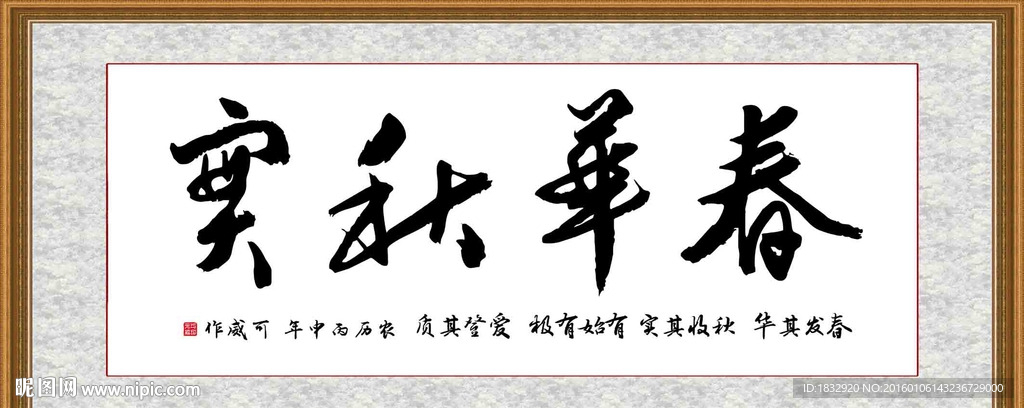 春華秋實
春发其华 秋收其实 有始有极 爱登其质 农历丙申年 可威作
昵图网 www.nipic.com
ID:1832920 NO:20160106143236729000